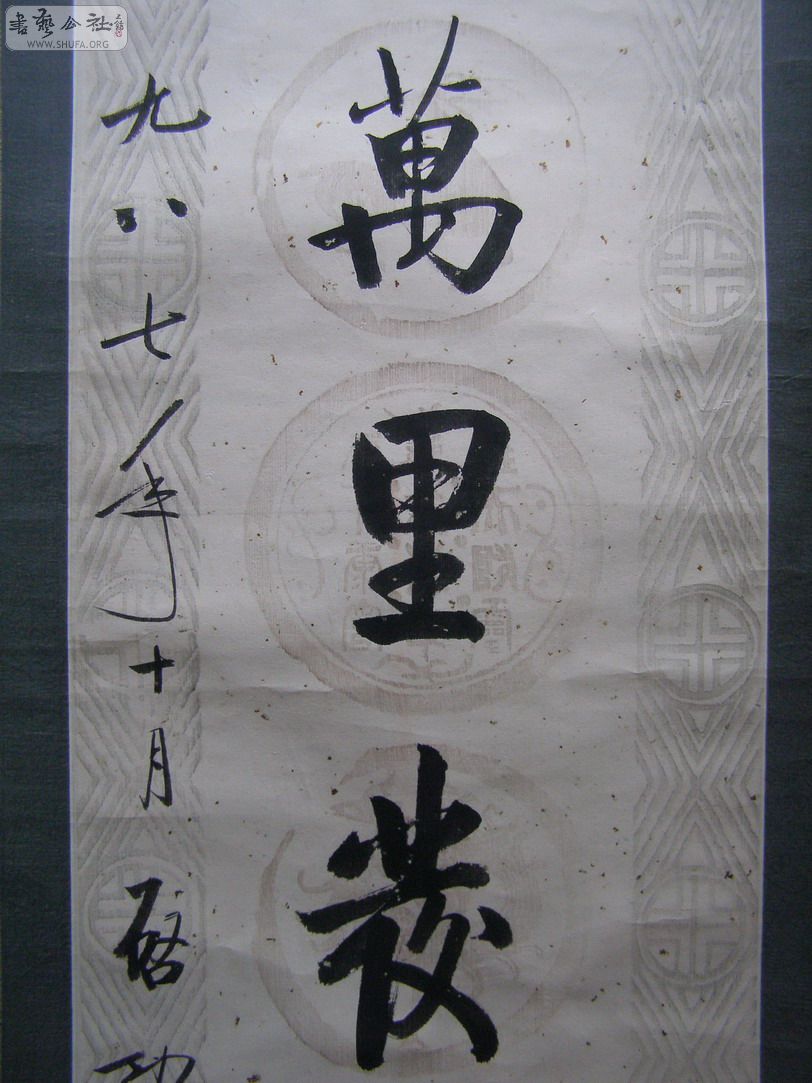 書藝公社
WWW.SHUFA.ORG
萬里發
九八七年十月启功